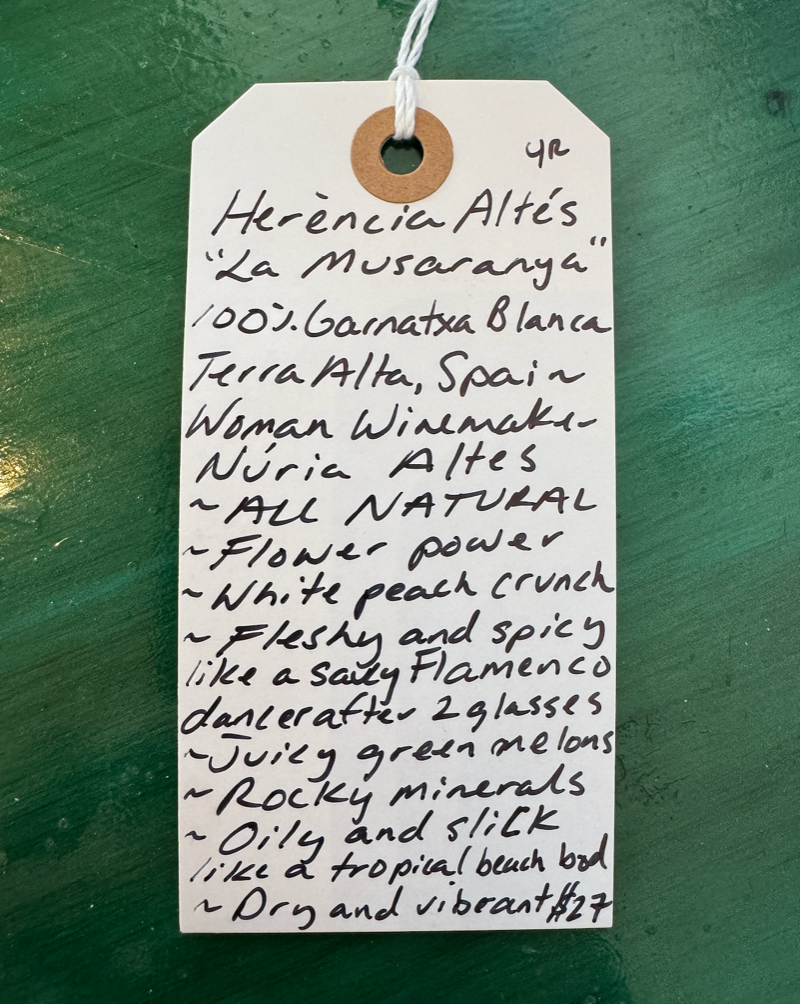 YR
Herència Altés
"La Musaranya"
100% Garnatxa Blanca
Terra Alta, Spain
Woman Winemaker
Núria Altes
~ ALL NATURAL
~ Flower power
~ White peach crunch
~ Fleshy and spicy
like a saucy Flamenco
dancer after 2 glasses
~ Juicy green melons
~ Rocky minerals
~ Oily and slick
like a tropical beach bod
~ Dry and vibrant $27